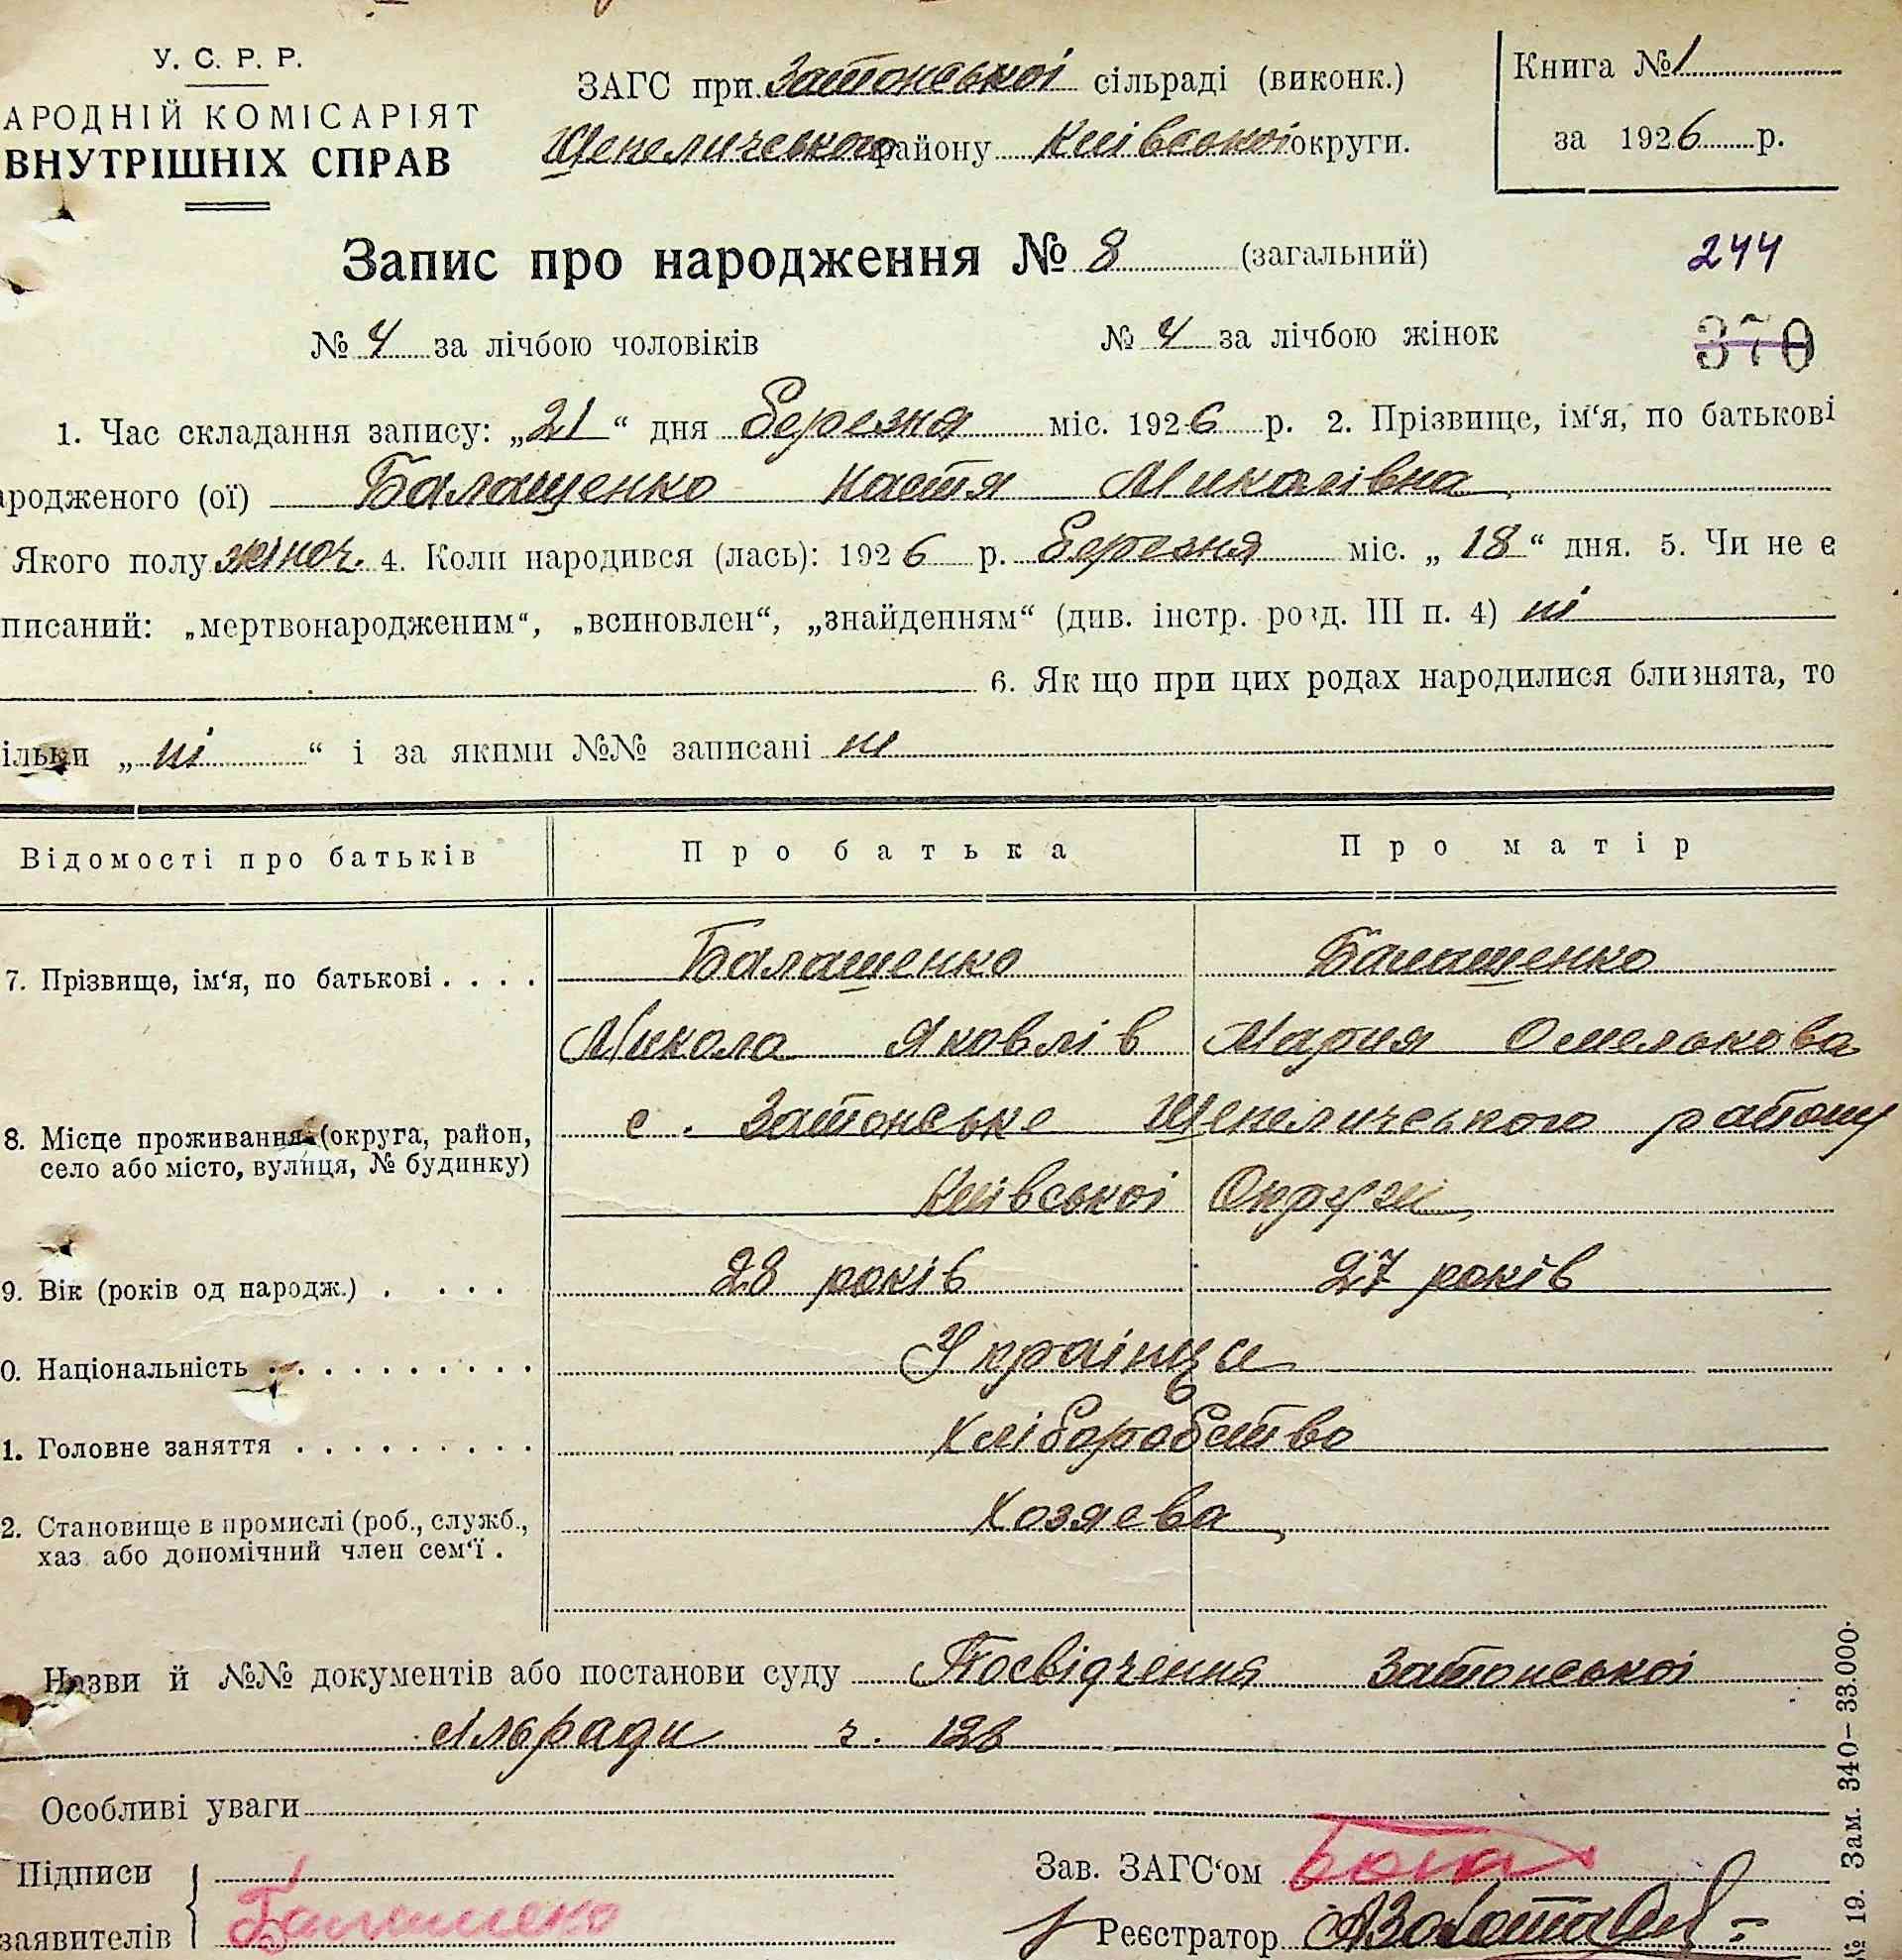 У. С. Р. Р.
АРОДНІЙ КОМІСАРІЯТ
ВНУТРІШНІХ СПРАВ
ЗАГС при Затонської сільраді (виконк.)
Шепелического району Київської округи.
Книга № 1
за 1926 р.
Запис про народження № 8 (загальний)
244
№ 4 за лічбою чоловіків № 4 за лічбою жінок
370
1. Час складання запису: „21“ дня березня міс. 1926 р. 2. Прізвище, ім‘я, по батькові
ародженого (ої) Балашенко Настя Миколівна
Якого полу жіноч. 4. Коли народився (лась): 1926 р. березня міс. „18“ дня. 5. Чи не є
писаний: „мертвонародженим“, „всиновлен“, „знайденням“ (див. інстр. розд. III п. 4) ні
6. Як що при цих родах народилися близнята, то
ільки „ні“ і за якими №№ записані ні
Відомості про батьків Про батька Про матір
7. Прізвище, ім‘я, по батькові . . . . Балашенко Балашенко
Микола Яковлів Мария Омелькова
8. Місце проживання (округа, район, село або місто, вулиця, № будинку) с. Затонське Шепелического району
Київської Округи
9. Вік (років од народж.) . . . . 28 років 27 років
0. Національність . . . . . . . . . . Українці
1. Головне заняття . . . . . . . . . Хліборобство
2. Становище в промислі (роб., служб., хаз. або допомічний член сем‘ї . Хозяєва
Назви й №№ документів або постанови суду Посвідчення Затонської
сільради ч. 128
Особливі уваги
Підписи
заявителів Балашеко
Зав. ЗАГС‘ом
Реєстратор
№ 19. Зам. 340–33.000.